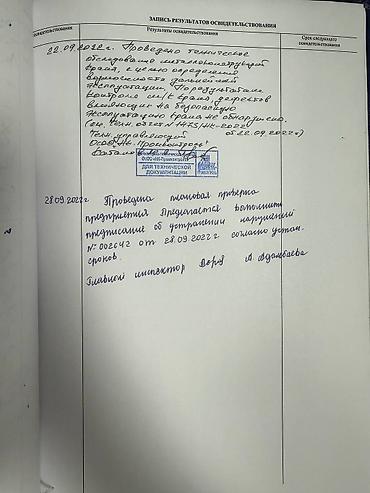 ЗАПИСЬ РЕЗУЛЬТАТОВ ОСВИДЕТЕЛЬСТВОВАНИЯ
Результаты освидетельствования
Срок следующего освидетельствования
22.09.2022г. Проведено техническое
обследование металлоконструкций
крана, с целью определения
возможности дальнейшей
эксплуатации. По результатам
контроля м/к крана, дефектов
влияющих на безопасную
эксплуатацию крана не обнаружено.
от 22.09.2022г)
Техн. управляющий
ДЛЯ ТЕХНИЧЕСКОЙ
ДОКУМЕНТАЦИИ
28.09.2022г Проведена плановая проверка
предприятия. Предлагается выполнить
предписание об устранении нарушений
№002642 от 28.09.2022г. согласно устан.
сроков.
Главный инспектор